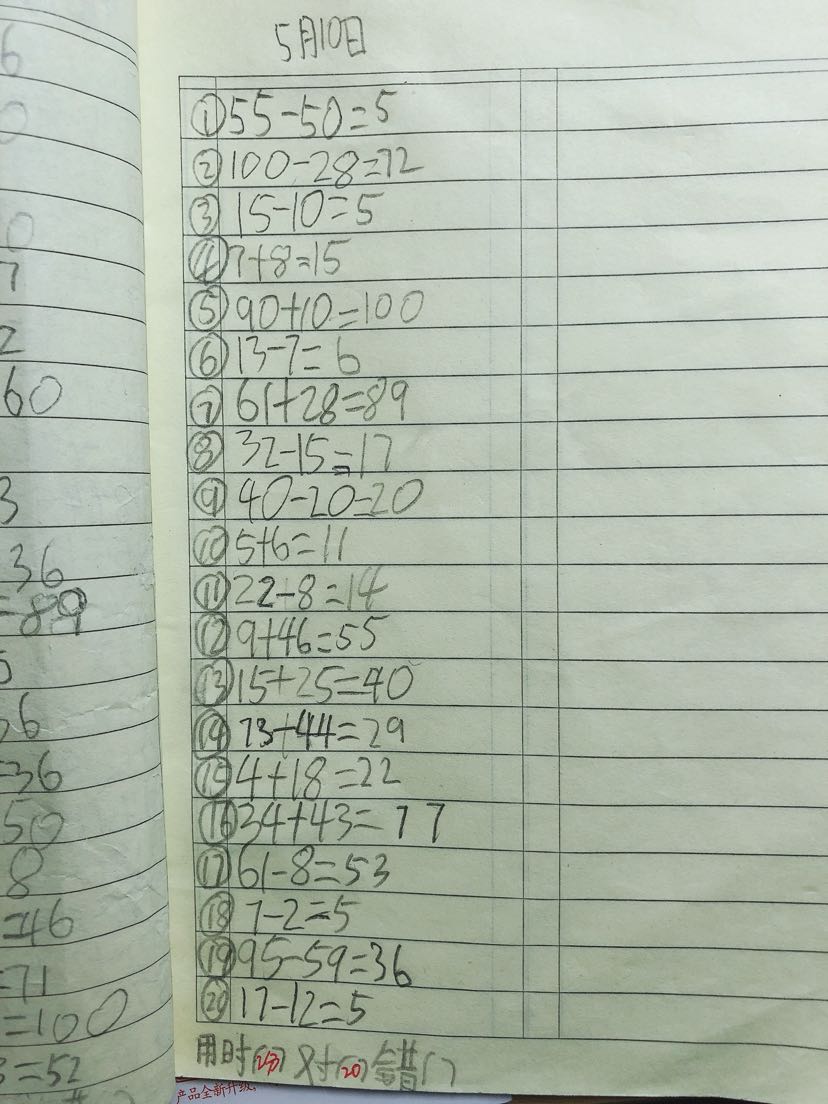 5月10日
6
0
0
7
2
60
3
36
=89
5
26
=36
50
8
=46
=71
=100
3=52
①55-50=5
②100-28=72
③15-10=5
④7+8=15
⑤90+10=100
⑥13-7=6
⑦61+28=89
⑧32-15=17
⑨40-20=20
⑩5+6=11
⑪22-8=14
⑫9+46=55
⑬15+25=40
⑭73-44=29
⑮4+18=22
⑯34+43=77
⑰61-8=53
⑱7-2=5
⑲95-59=36
⑳17-12=5
用时(2分) 对(20) 错( )
产品全新升级,